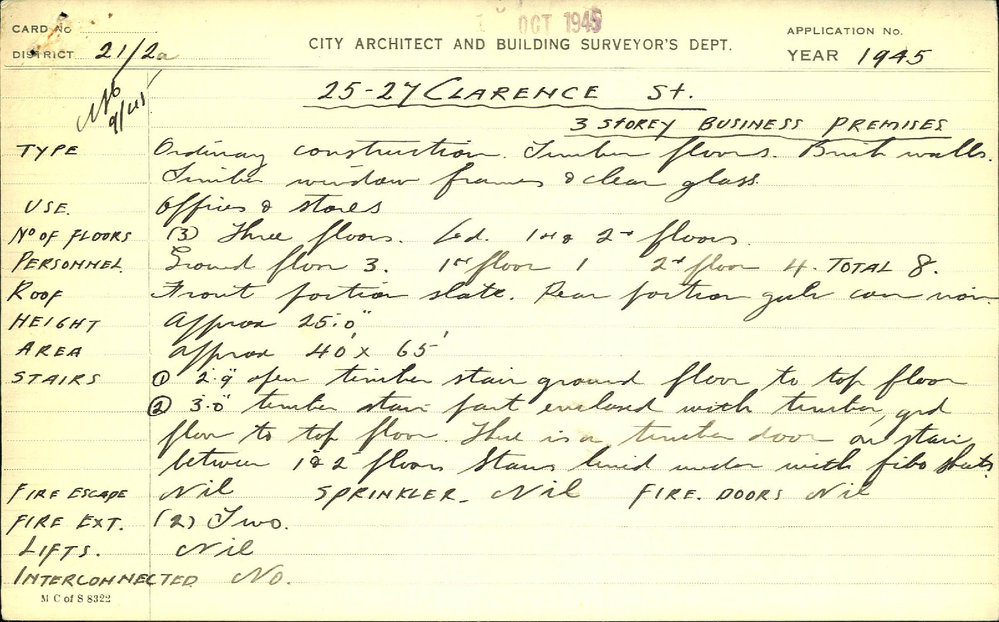 OCT 1945
CARD No
APPLICATION No.
DISTRICT 21/2a
CITY ARCHITECT AND BUILDING SURVEYOR'S DEPT.
YEAR 1945
25-27 CLARENCE St.
3 STOREY BUSINESS PREMISES
TYPE Ordinary construction. Timber floors. Brick walls.
Timber window frames & clear glass.
USE. Offices & stores
No OF FLOORS (3) Three floors. Gd. 1st & 2nd floors.
PERSONNEL Ground floor 3. 1st floor 1 2nd floor 4. TOTAL 8.
ROOF Front portion slate. Rear portion galv corr iron.
HEIGHT Approx 25'.0"
AREA approx 40' x 65'
STAIRS ① 2'.9" open timber stair ground floor to top floor
② 3'.0" timber stair part enclosed with timber, grd
floor to top floor. There is a timber door on stair
between 1 & 2 floors Stairs lined under with fibo sheets
FIRE ESCAPE Nil SPRINKLER. Nil FIRE. DOORS Nil
FIRE EXT. (2) Two.
LIFTS. Nil
INTERCONNECTED No.
M C of S 8322